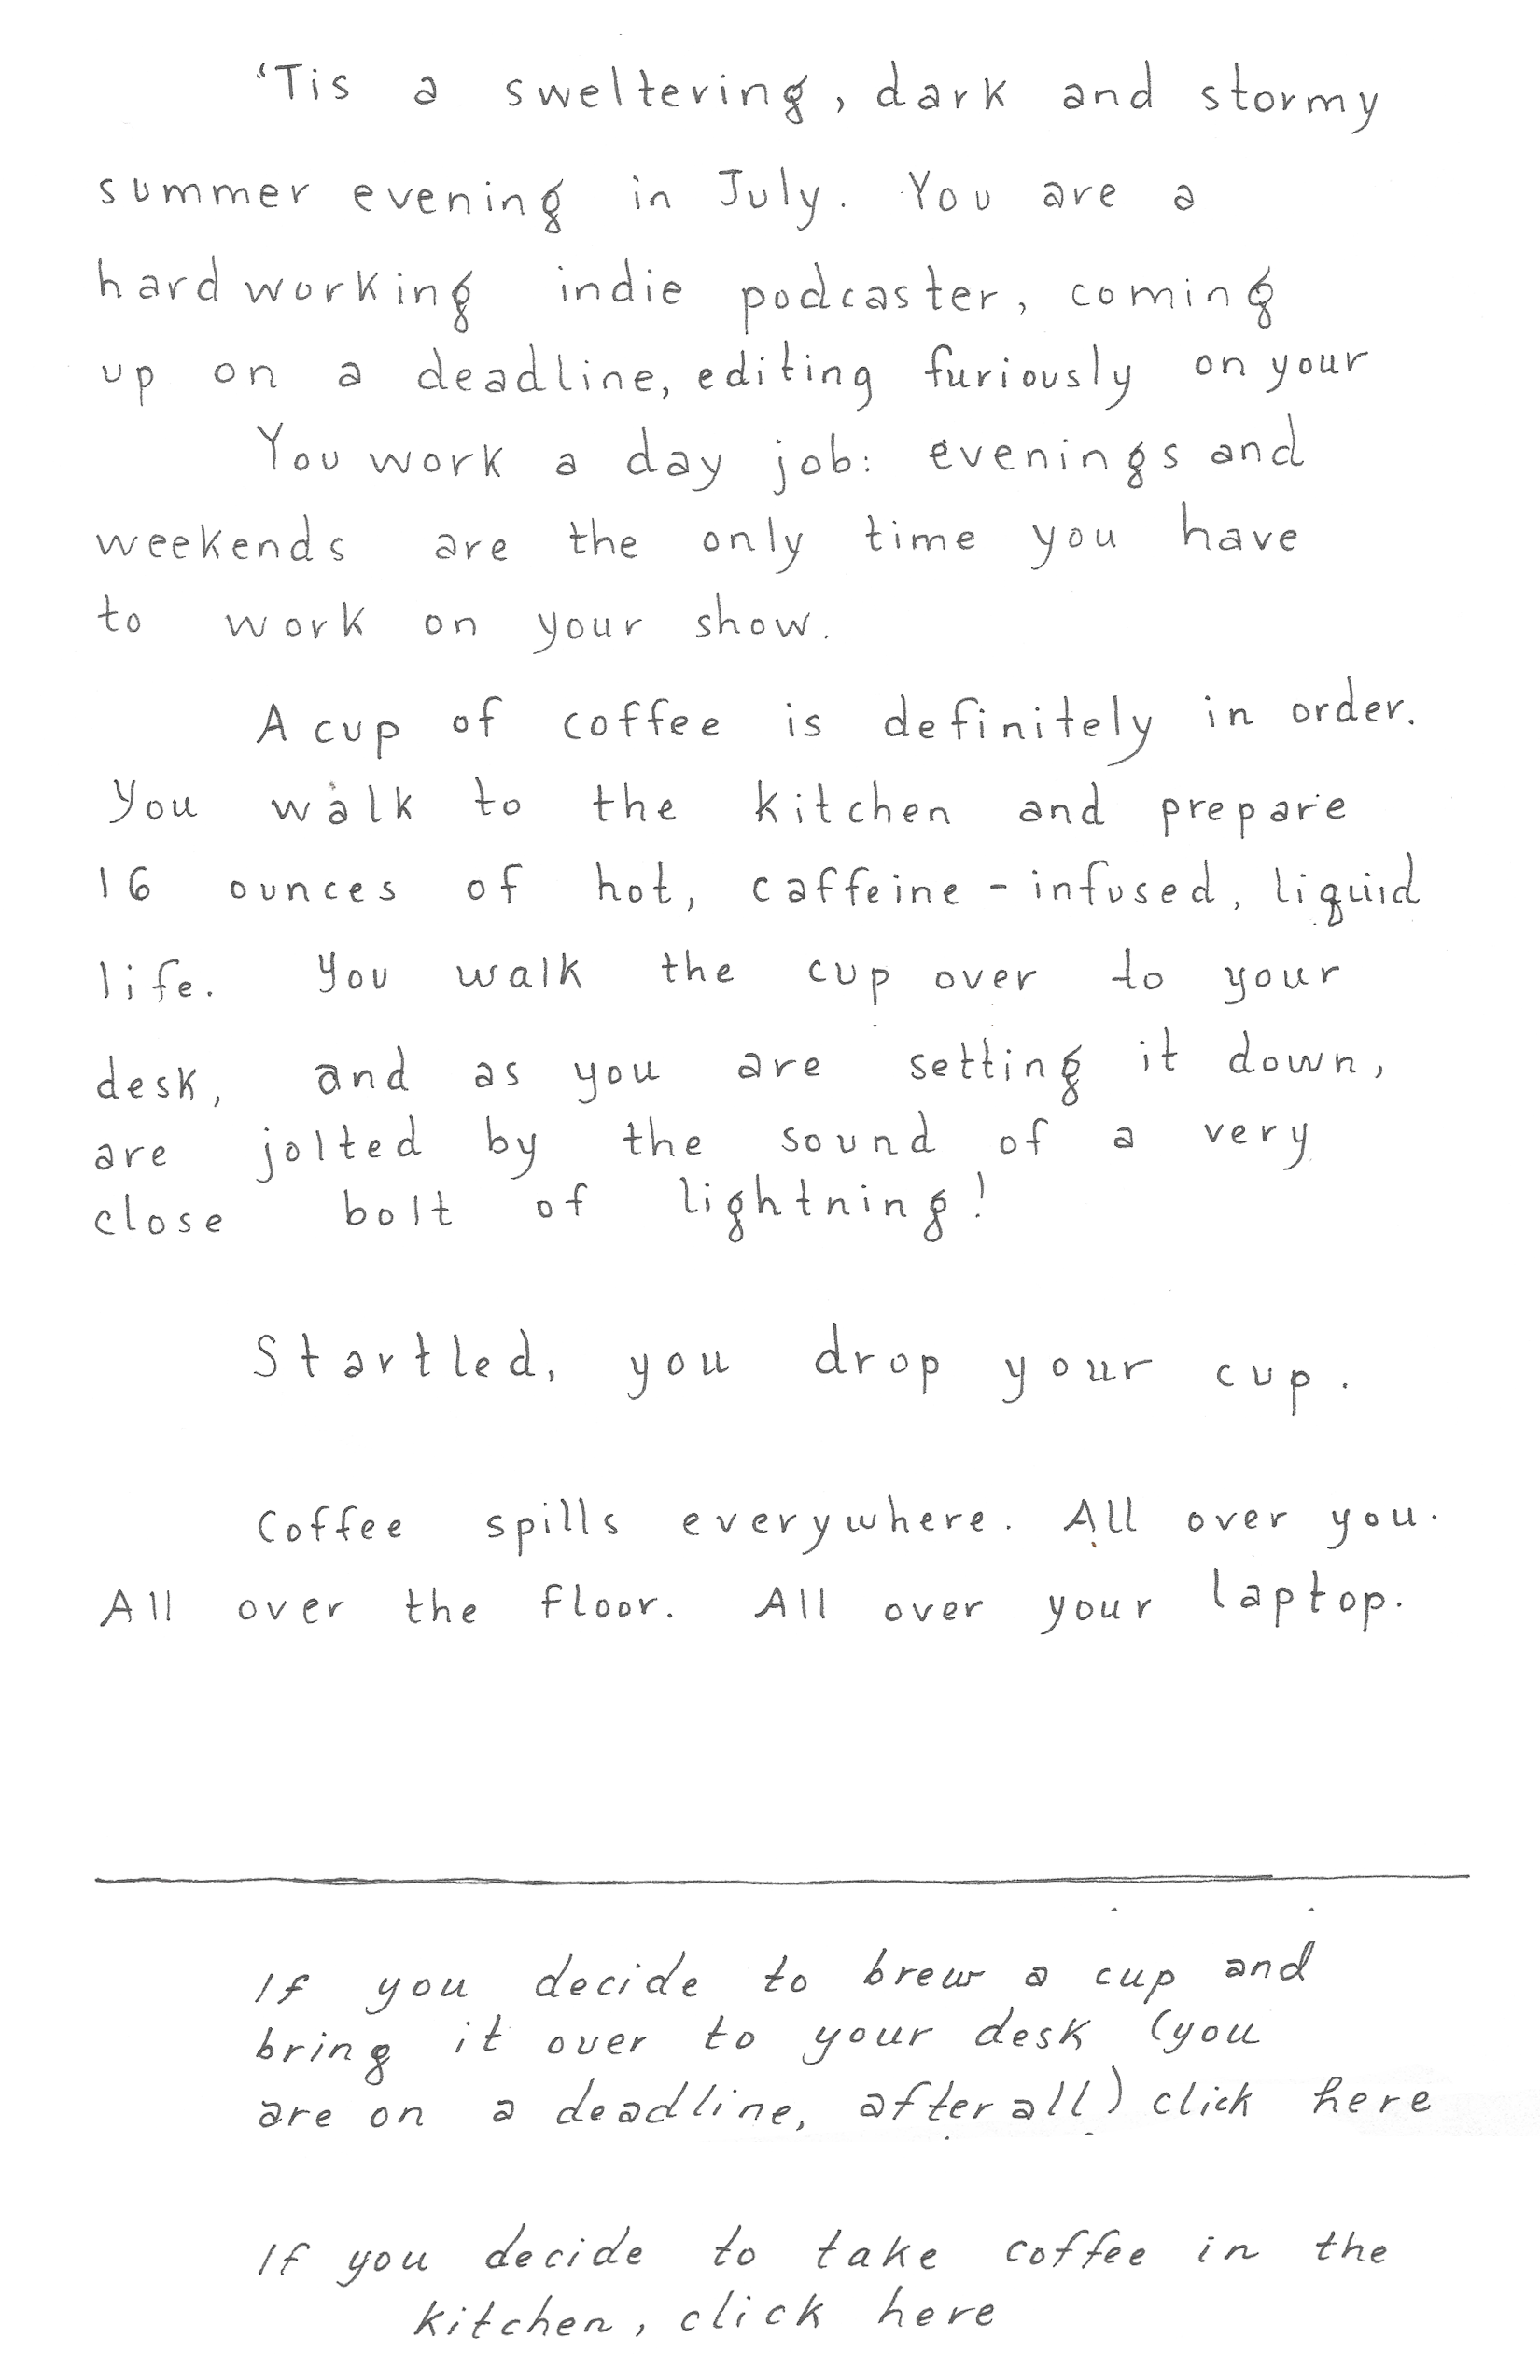 ‘Tis a sweltering, dark and stormy
summer evening in July. You are a
hardworking indie podcaster, coming
up on a deadline, editing furiously on your
You work a day job: evenings and
weekends are the only time you have
to work on your show.
A cup of coffee is definitely in order.
You walk to the kitchen and prepare
16 ounces of hot, caffeine-infused, liquid
life. You walk the cup over to your
desk, and as you are setting it down,
are jolted by the sound of a very
close bolt of lightning!
Startled, you drop your cup.
Coffee spills everywhere. All over you.
All over the floor. All over your laptop.
If you decide to brew a cup and
bring it over to your desk (you
are on a deadline, after all) click here
If you decide to take coffee in the
kitchen, click here